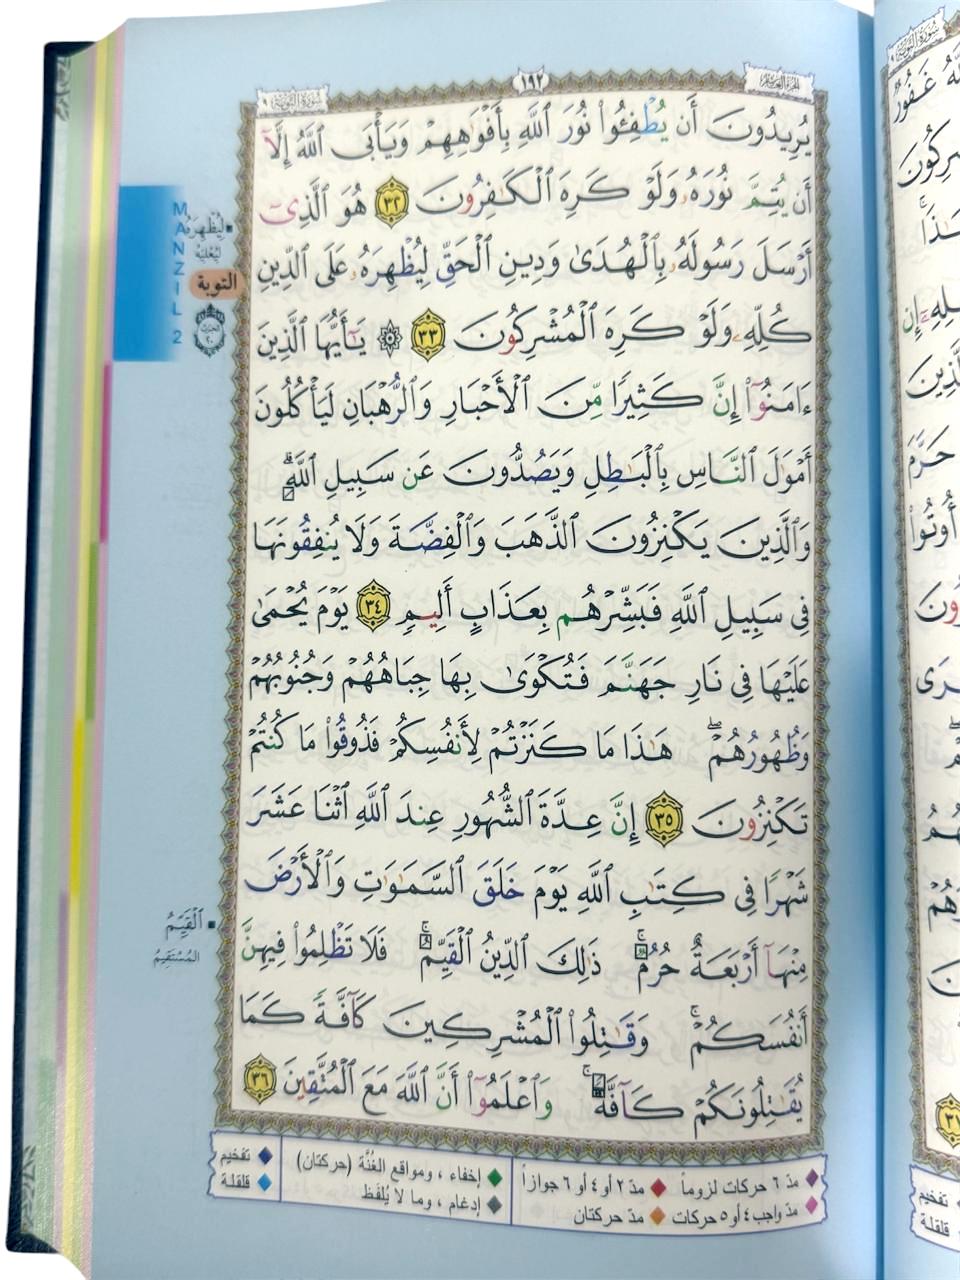 سُورَةُ التَّوْبَةِ ٩
١٩٢
الجزء العاشر
يُرِيدُونَ أَن يُطْفِـُٔوا۟ نُورَ ٱللَّهِ بِأَفْوَٰهِهِمْ وَيَأْبَى ٱللَّهُ إِلَّآ
أَن يُتِمَّ نُورَهُۥ وَلَوْ كَرِهَ ٱلْكَـٰفِرُونَ ٣٢ هُوَ ٱلَّذِىٓ
أَرْسَلَ رَسُولَهُۥ بِٱلْهُدَىٰ وَدِينِ ٱلْحَقِّ لِيُظْهِرَهُۥ عَلَى ٱلدِّينِ
كُلِّهِۦ وَلَوْ كَرِهَ ٱلْمُشْرِكُونَ ٣٣ ۞ يَـٰٓأَيُّهَا ٱلَّذِينَ
ءَامَنُوٓا۟ إِنَّ كَثِيرًا مِّنَ ٱلْأَحْبَارِ وَٱلرُّهْبَانِ لَيَأْكُلُونَ
أَمْوَٰلَ ٱلنَّاسِ بِٱلْبَـٰطِلِ وَيَصُدُّونَ عَن سَبِيلِ ٱللَّهِ ۗ
وَٱلَّذِينَ يَكْنِزُونَ ٱلذَّهَبَ وَٱلْفِضَّةَ وَلَا يُنفِقُونَهَا
فِى سَبِيلِ ٱللَّهِ فَبَشِّرْهُم بِعَذَابٍ أَلِيمٍ ٣٤ يَوْمَ يُحْمَىٰ
عَلَيْهَا فِى نَارِ جَهَنَّمَ فَتُكْوَىٰ بِهَا جِبَاهُهُمْ وَجُنُوبُهُمْ
وَظُهُورُهُمْ ۖ هَـٰذَا مَا كَنَزْتُمْ لِأَنفُسِكُمْ فَذُوقُوا۟ مَا كُنتُمْ
تَكْنِزُونَ ٣٥ إِنَّ عِدَّةَ ٱلشُّهُورِ عِندَ ٱللَّهِ ٱثْنَا عَشَرَ
شَهْرًا فِى كِتَـٰبِ ٱللَّهِ يَوْمَ خَلَقَ ٱلسَّمَـٰوَٰتِ وَٱلْأَرْضَ
مِنْهَآ أَرْبَعَةٌ حُرُمٌ ۚ ذَٰلِكَ ٱلدِّينُ ٱلْقَيِّمُ ۚ فَلَا تَظْلِمُوا۟ فِيهِنَّ
أَنفُسَكُمْ ۚ وَقَـٰتِلُوا۟ ٱلْمُشْرِكِينَ كَآفَّةً كَمَا
يُقَـٰتِلُونَكُمْ كَآفَّةً ۚ وَٱعْلَمُوٓا۟ أَنَّ ٱللَّهَ مَعَ ٱلْمُتَّقِينَ ٣٦
لِيُظْهِرَهُ
لِيُعْلِيَهُ
التوبة
MANZIL 2
ٱلْقَيِّمُ
المُسْتَقِيمُ
مدّ ٦ حركات لزوماً
مدّ ٢ أو ٤ أو ٦ جوازاً
مدّ واجب ٤ أو ٥ حركات
مدّ حركتان
إخفاء ، ومواقع الغُنَّة (حركتان)
إدغام ، وما لا يُلفَظ
تفخيم
قلقلة
سُورَةُ التَّوْبَةِ ٩
غَفُورٌ
حَرَّمَ
أُوتُوا۟
تفخيم
قلقلة